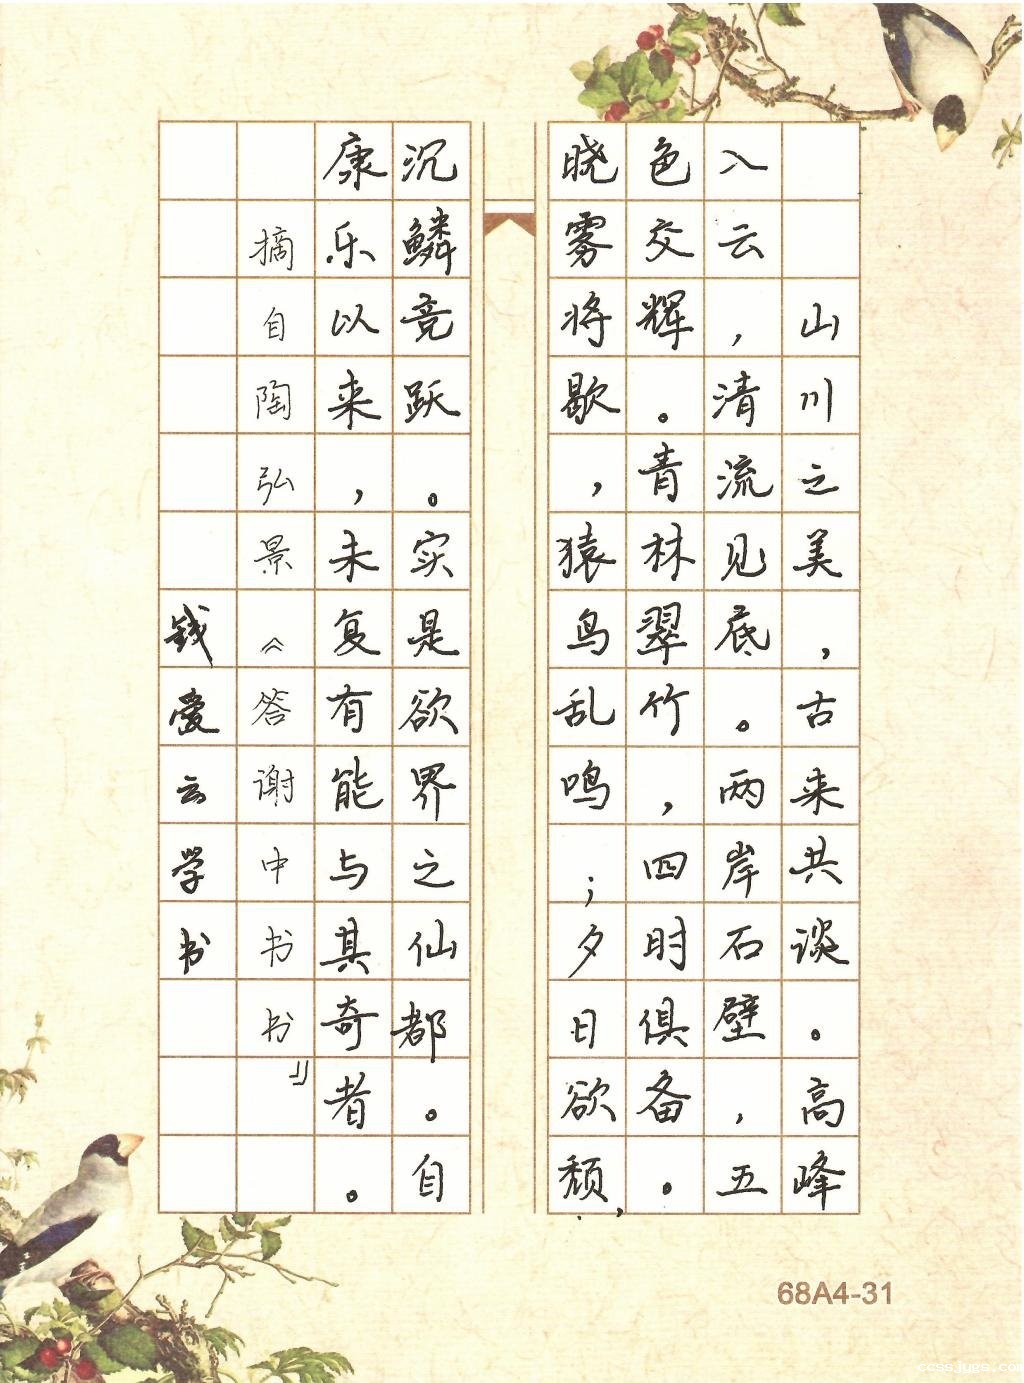 山川之美，古来共谈。高峰
入云，清流见底。两岸石壁，五
色交辉。青林翠竹，四时俱备。
晓雾将歇，猿鸟乱鸣；夕日欲颓，
沉鳞竞跃。实是欲界之仙都。自
康乐以来，未复有能与其奇者。
摘自陶弘景《答谢中书书》
钱爱云学书
68A4-31